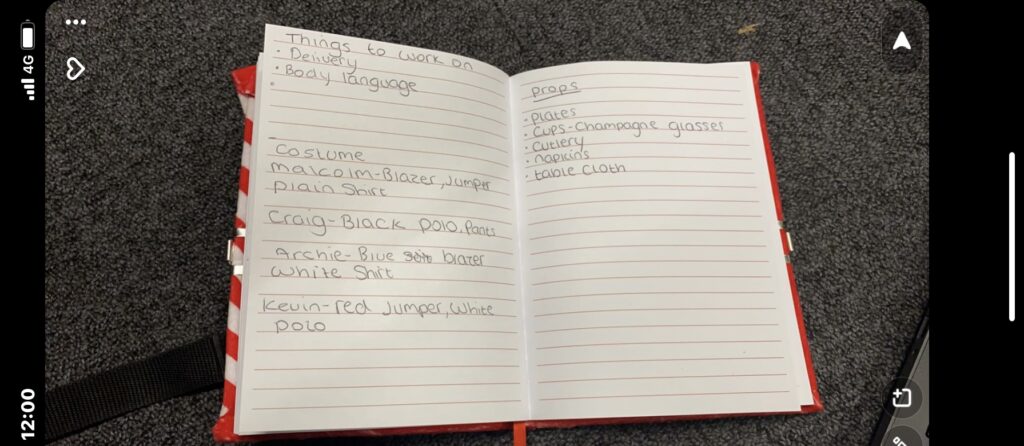 Things to work on
• Delivery
• Body language
•
Costume
Malcolm-Blazer, Jumper
Plain Shirt
Craig-Black Polo, Pants
Archie-Blue blazer
White Shirt
Kevin-red Jumper, White
Polo
Props
• Plates
• Cups-Champagne glasses
• Cutlery
• napkins
• table cloth
12:00
4G